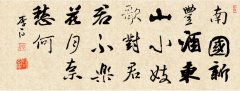 南國新
豐酒東
山小妓
歌對君
君不樂
花月奈
愁何